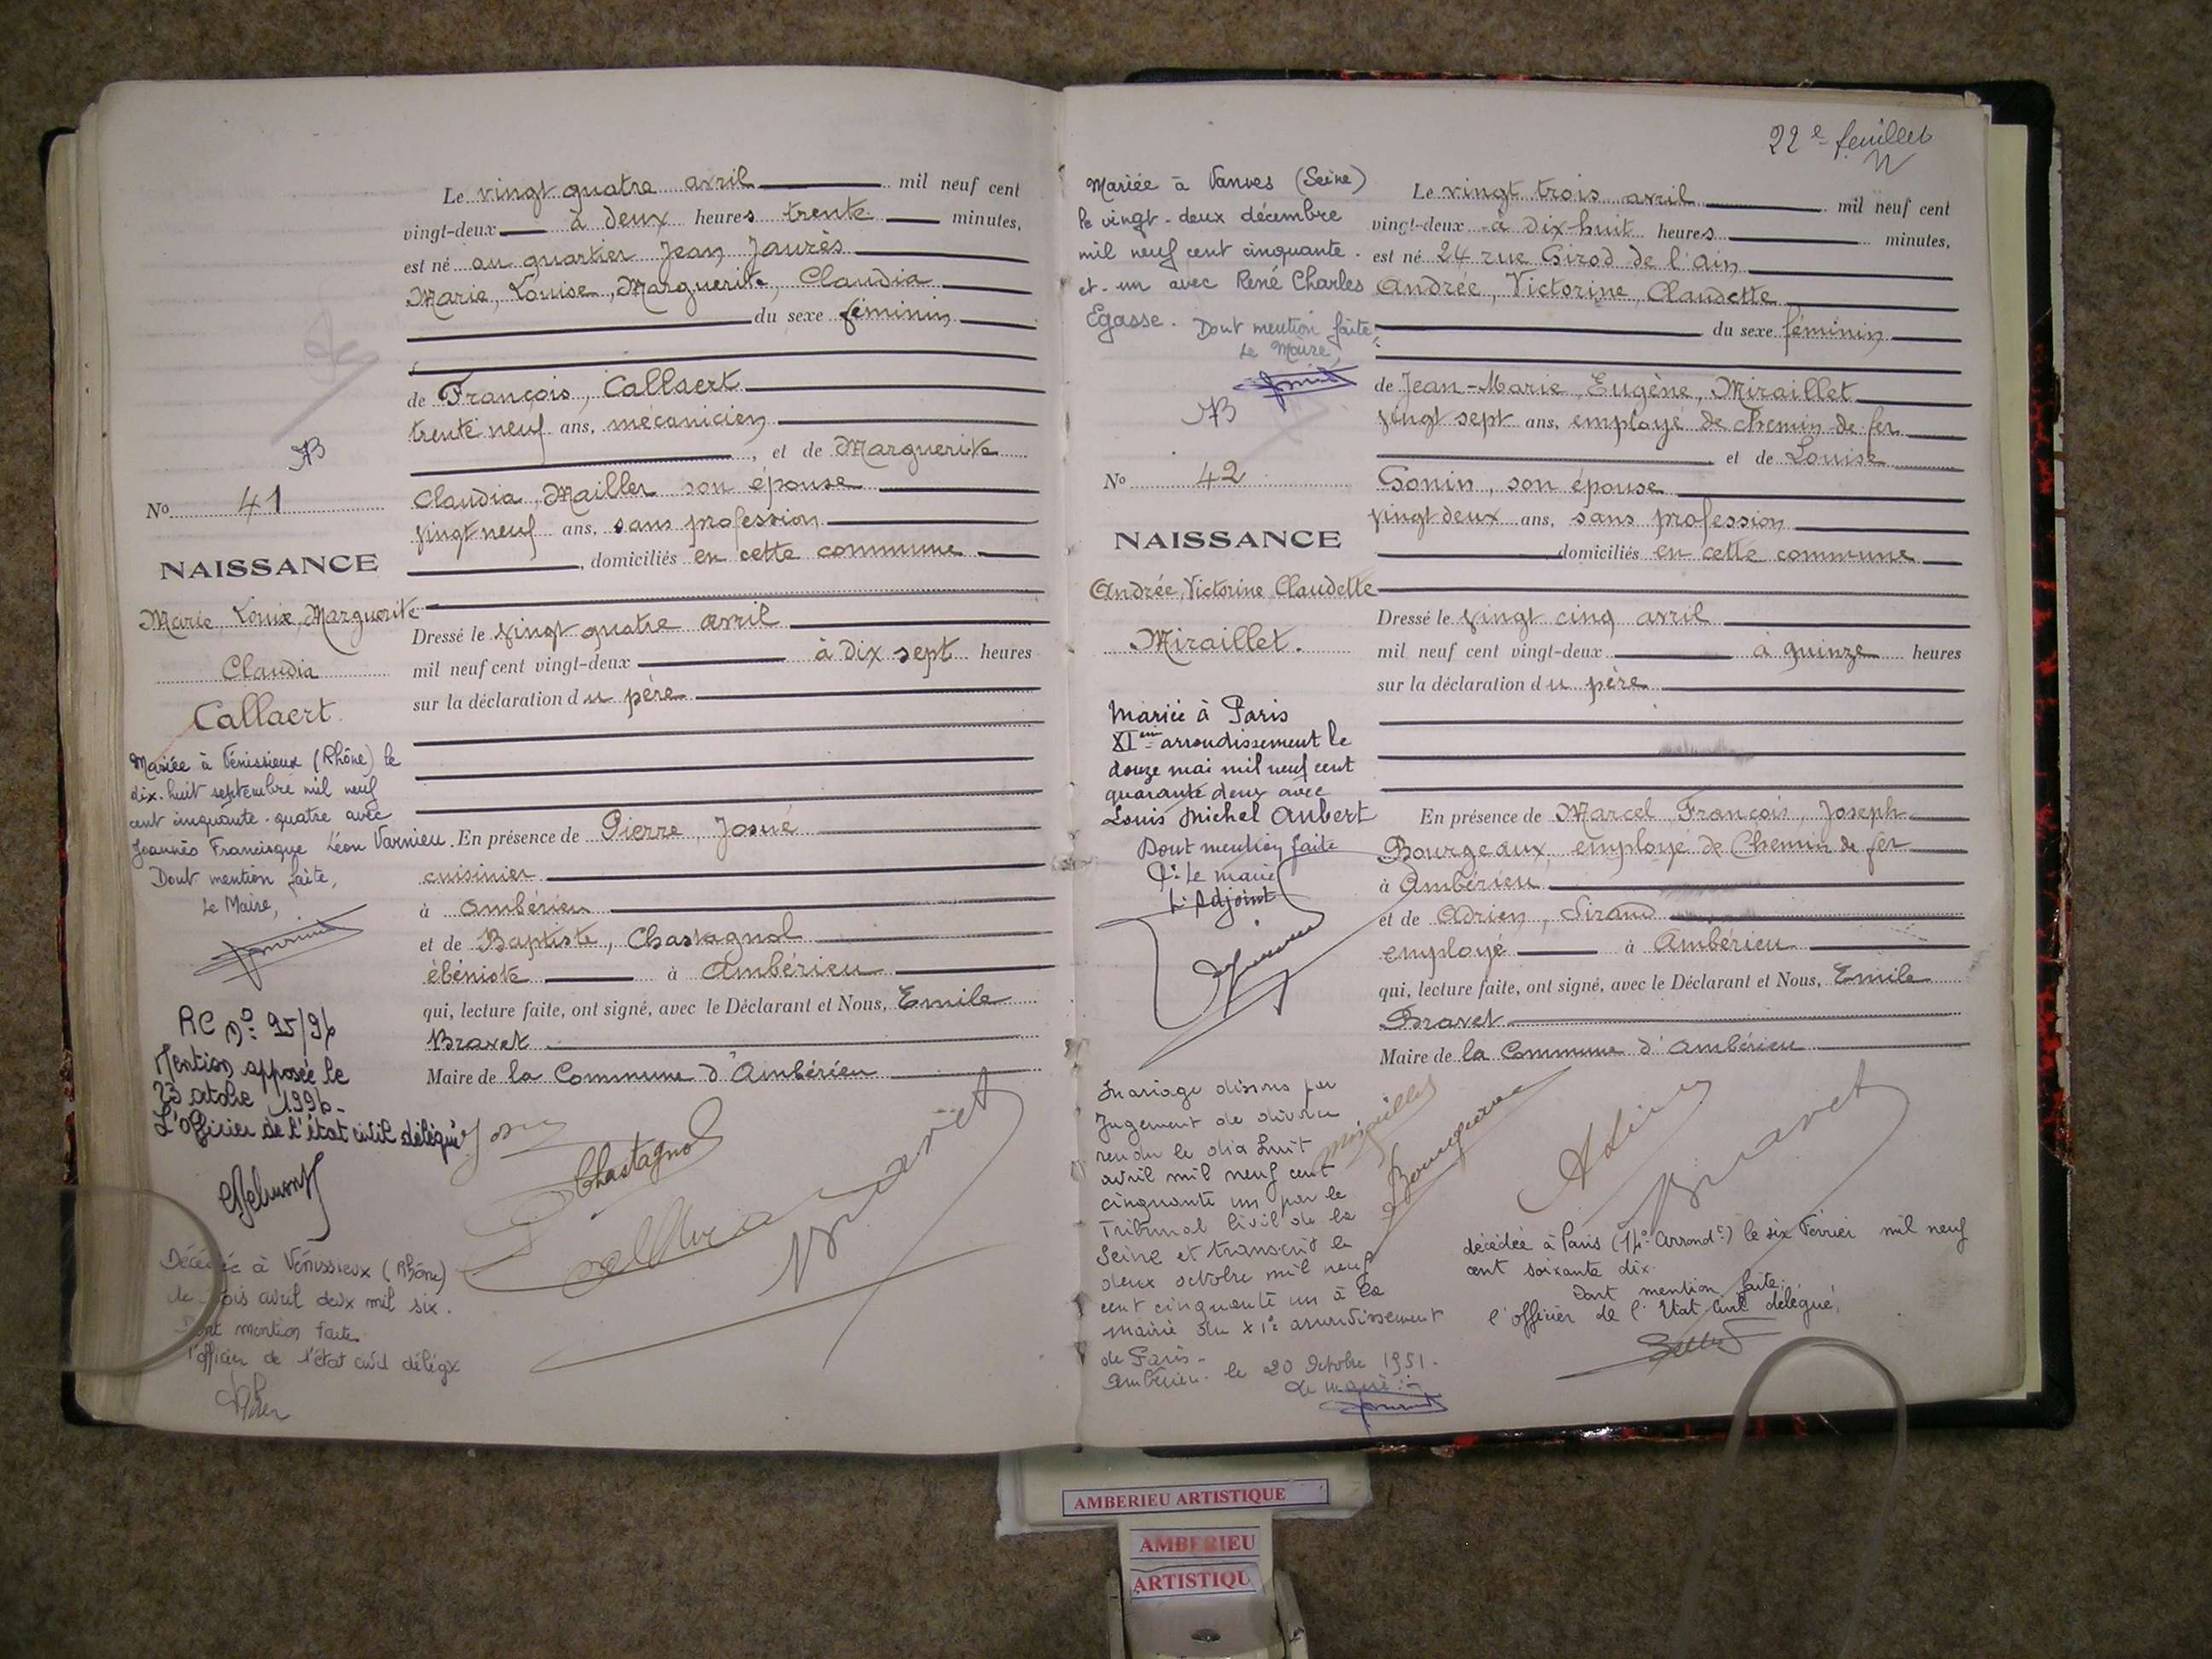 Le vingt quatre avril mil neuf cent
vingt-deux à deux heures trente minutes,
est né au quartier Jean Jaurès
Marie, Louise, Marguerite, Claudia
du sexe féminin
de François, Callaert
trente neuf ans, mécanicien
, et de Marguerite
Claudia, Mailler son épouse
vingt neuf ans, sans profession
, domiciliés en cette commune
Dressé le vingt quatre avril
mil neuf cent vingt-deux à dix sept heures
sur la déclaration du père
En présence de Pierre, Josué
cuisinier
à Ambérieu
et de Baptiste, Chastagnol
ébéniste à Ambérieu
qui, lecture faite, ont signé, avec le Déclarant et Nous, Emile
Bravet
Maire de la Commune d'Ambérieu
Chastagnol
Bravet
AB
No 41
NAISSANCE
Marie, Louise, Marguerite
Claudia
Callaert
Mariée à Vénissieux (Rhône) le
dix-huit septembre mil neuf
cent cinquante-quatre avec
Joannès Francisque Léon Varnieu.
Dont mention faite,
Le Maire,
RC no: 95/96
Mention apposée le
23 octobre 1996-
L'officier de l'état civil délégué
Décédée à Vénissieux (Rhône)
avril deux mil six.
Dont mention faite
l'officier de l'état civil délégué
22e feuillet
Mariée à Vanves (Seine)
le vingt-deux décembre
mil neuf cent cinquante-
et-un avec René Charles
Egasse. Dont mention faite,
Le Maire,
AB
No 42
NAISSANCE
Andrée, Victorine Claudette
Miraillet.
Mariée à Paris
XIème arrondissement le
douze mai mil neuf cent
quarante deux avec
Louis Michel Aubert
Dont mention faite
Pr Le maire
L'Adjoint
Mariage dissous par
Jugement de divorce
rendu le dix huit
avril mil neuf cent
cinquante un par le
Tribunal Civil de la
Seine et transcrit le
deux octobre mil neuf
cent cinquante un à la
mairie du XIe arrondissement
de Paris-
Ambérieu. le 20 Octobre 1951.
Le maire:-
Le vingt trois avril mil neuf cent
vingt-deux à dix-huit heures minutes,
est né 24 rue Girod de l'ain
Andrée, Victorine, Claudette
du sexe féminin
de Jean-Marie, Eugène, Miraillet
vingt sept ans, employé de chemin de fer
et de Louise
Gonin, son épouse
vingt deux ans, sans profession
domiciliés en cette commune
Dressé le vingt cinq avril
mil neuf cent vingt-deux à quinze heures
sur la déclaration du père
En présence de Marcel, François, Joseph
Bourgeaux, employé de Chemin de fer
à Ambérieu
et de Adrien, Siraud
employé à Ambérieu
qui, lecture faite, ont signé, avec le Déclarant et Nous, Emile
Bravet
Maire de la Commune d'Ambérieu
Miraillet
Bourgeaux
Bravet
décédée à Paris (14e Arrondt) le six Février mil neuf
cent soixante dix.
Dont mention faite
l'officier de l'Etat Civil délégué,
AMBERIEU ARTISTIQUE
AMBERIEU
ARTISTIQU